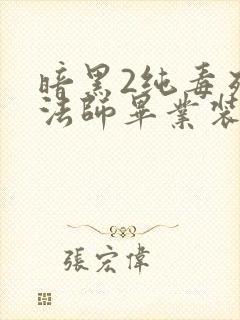 暗黑2純毒死
法師畢業裝
張宏偉